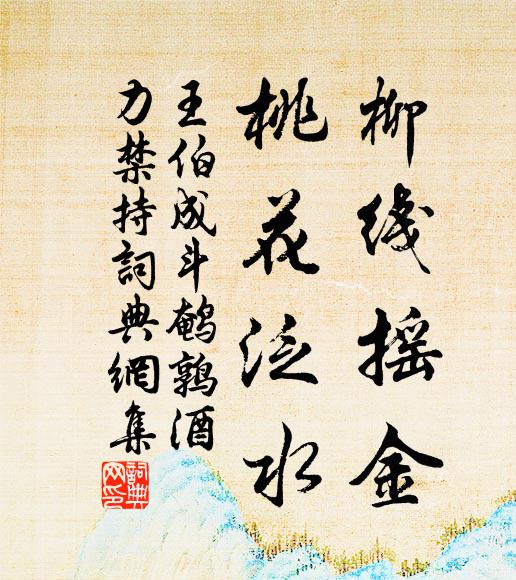 柳线摇金
桃花泛水
王伯成斗鹌鹑酒
力禁持詞典網集
詞典
网印